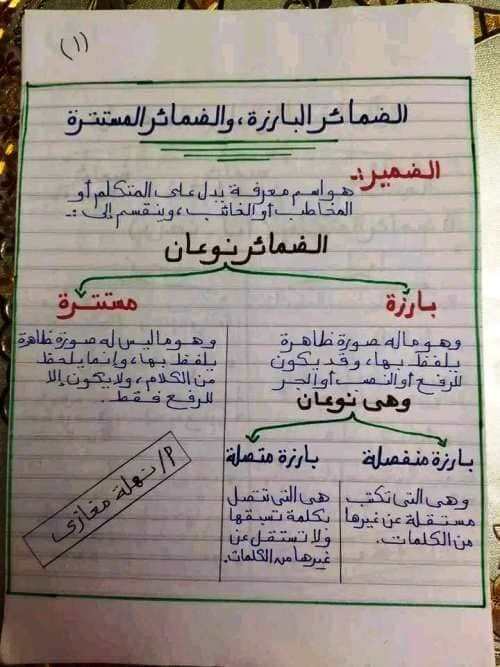 (١)
الضمائر البارزة، والضمائر المستترة
الضمير:ـ
هو اسم معرفة يدل على المتكلم أو
المخاطب أو الغائب، وينقسم إلى :ـ
الضمائر نوعان
بارزة
مستترة
وهو ماله صورة ظاهرة
يلفظ بها، وقد يكون
للرفع أو النصب أو الجر
وهى نوعان
بارزة منفصلة
بارزة متصلة
وهى التى تكتب
مستقلة عن غيرها
من الكلمات.
هى التى تتصل
بكلمة تسبقها
ولا تستقل عن
غيرها من الكلمات.
وهو ماليس له صورة ظاهرة
يلفظ بها، وإنما يلحظ
من الكلام، ولا يكون إلا
للرفع فقط..
أ/ نهلة مغازى